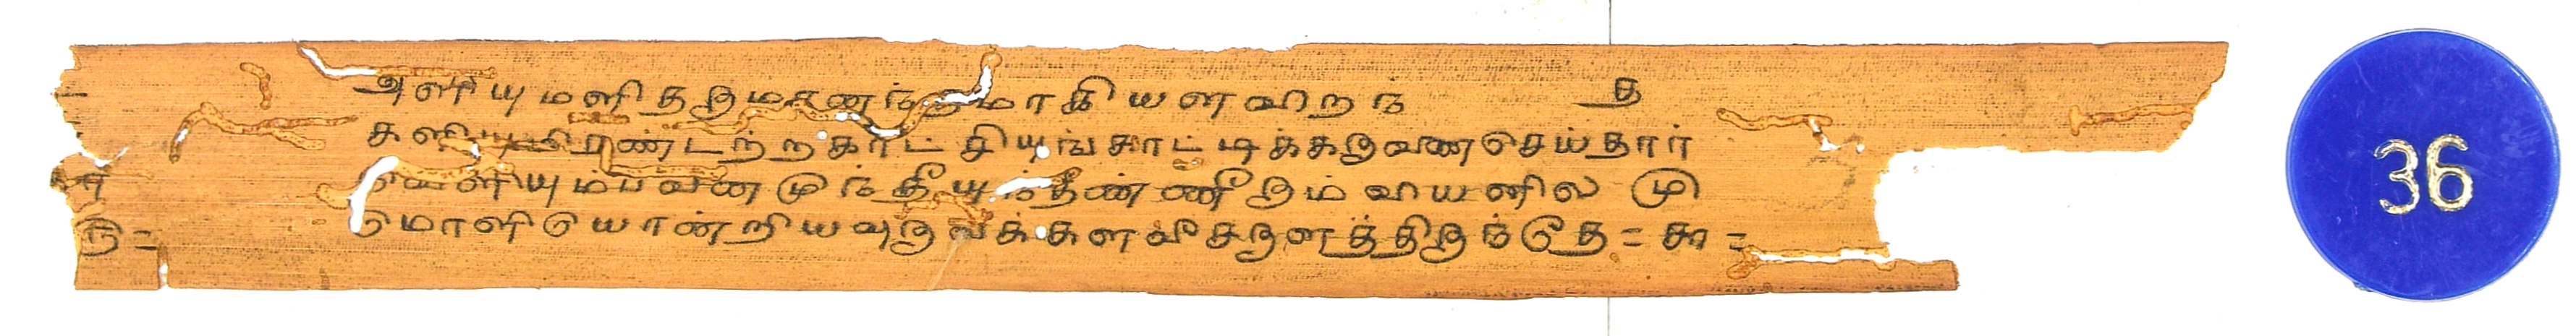 அளியுமளிதருமானந்தமாகியளவிறந் த
களியுமிரண்டற்றகாட்சியுங்காட்டிக்கருவணசெய்தார்
ர வெளியும்பவனமுந்தீயுந்தீண்ணீரும்வாயனில மு
ரு = மொளியொன்றியவுருவக்களவீசரூளத்திருந்தே = கூ =
36